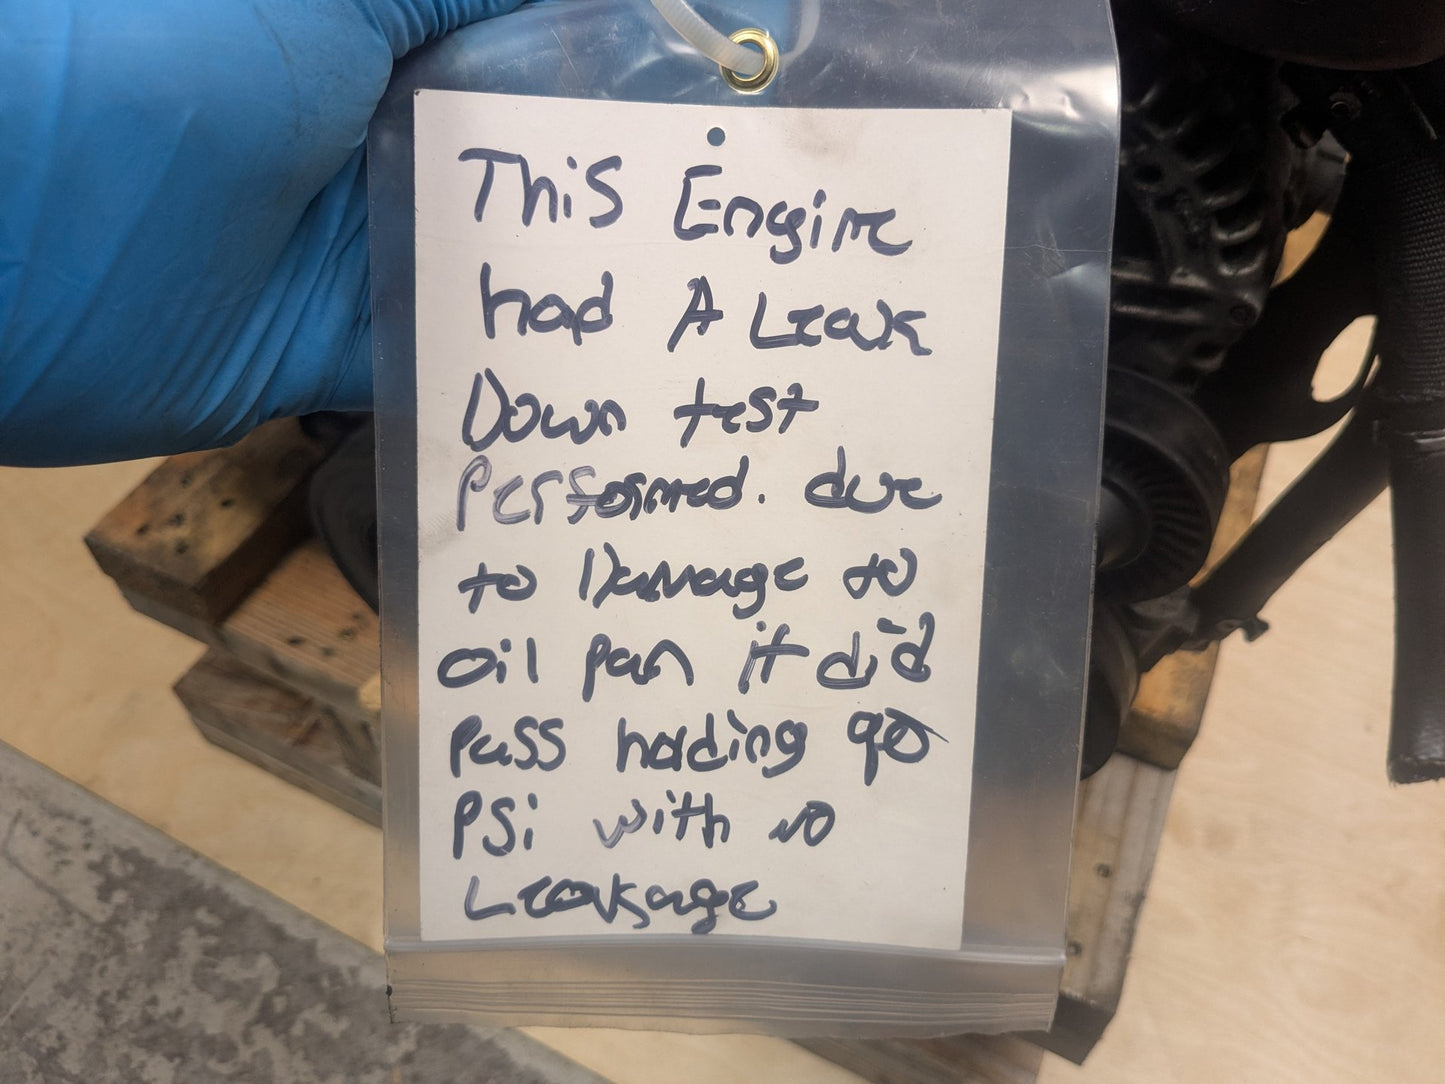 This Engine
had A Leak
Down test
Performed. due
to Damage to
oil pan it did
pass holding 90
PSi with no
Leakage